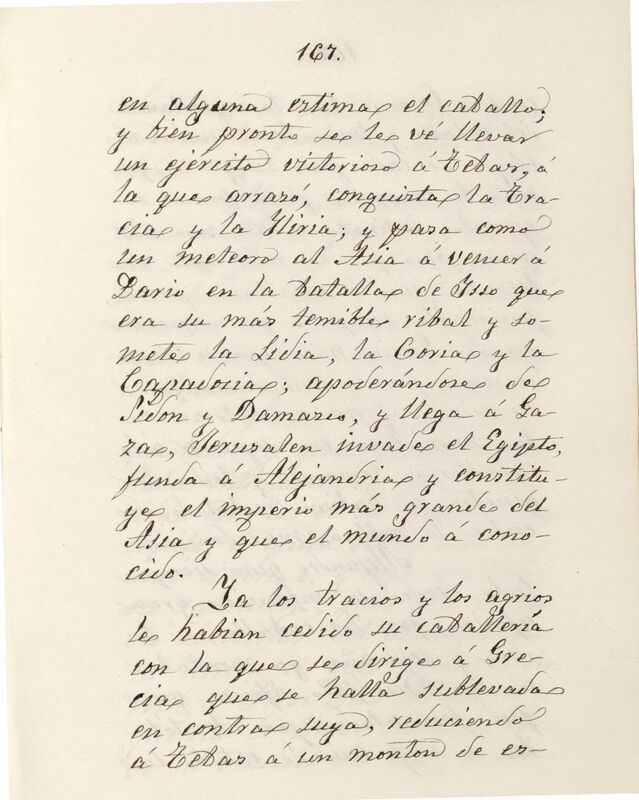 167.
en alguna estima el caballo;
y bien pronto se le vé llevar
un ejército victorioso á Tebas, á
la que arrazó, conquista la Tra-
cia y la Iliria; y pasa como
un meteoro al Asia á vencer á
Dario en la batalla de Isso que
era su más temible ribal y so-
mete la Lidia, la Coria y la
Capadosia; apoderándose de
Sidon y Damasco, y llega á Ga
za, Jerusalen invade el Egipto,
funda á Alejandria y constitu-
ye el imperio más grande del
Asia y que el mundo á cono-
cido.
Ya los tracios y los agrios
le habian cedido su caballería
con la que se dirige á Gre
cia que se halla sublevada
en contra suya, reduciendo
á Tebas á un monton de es-